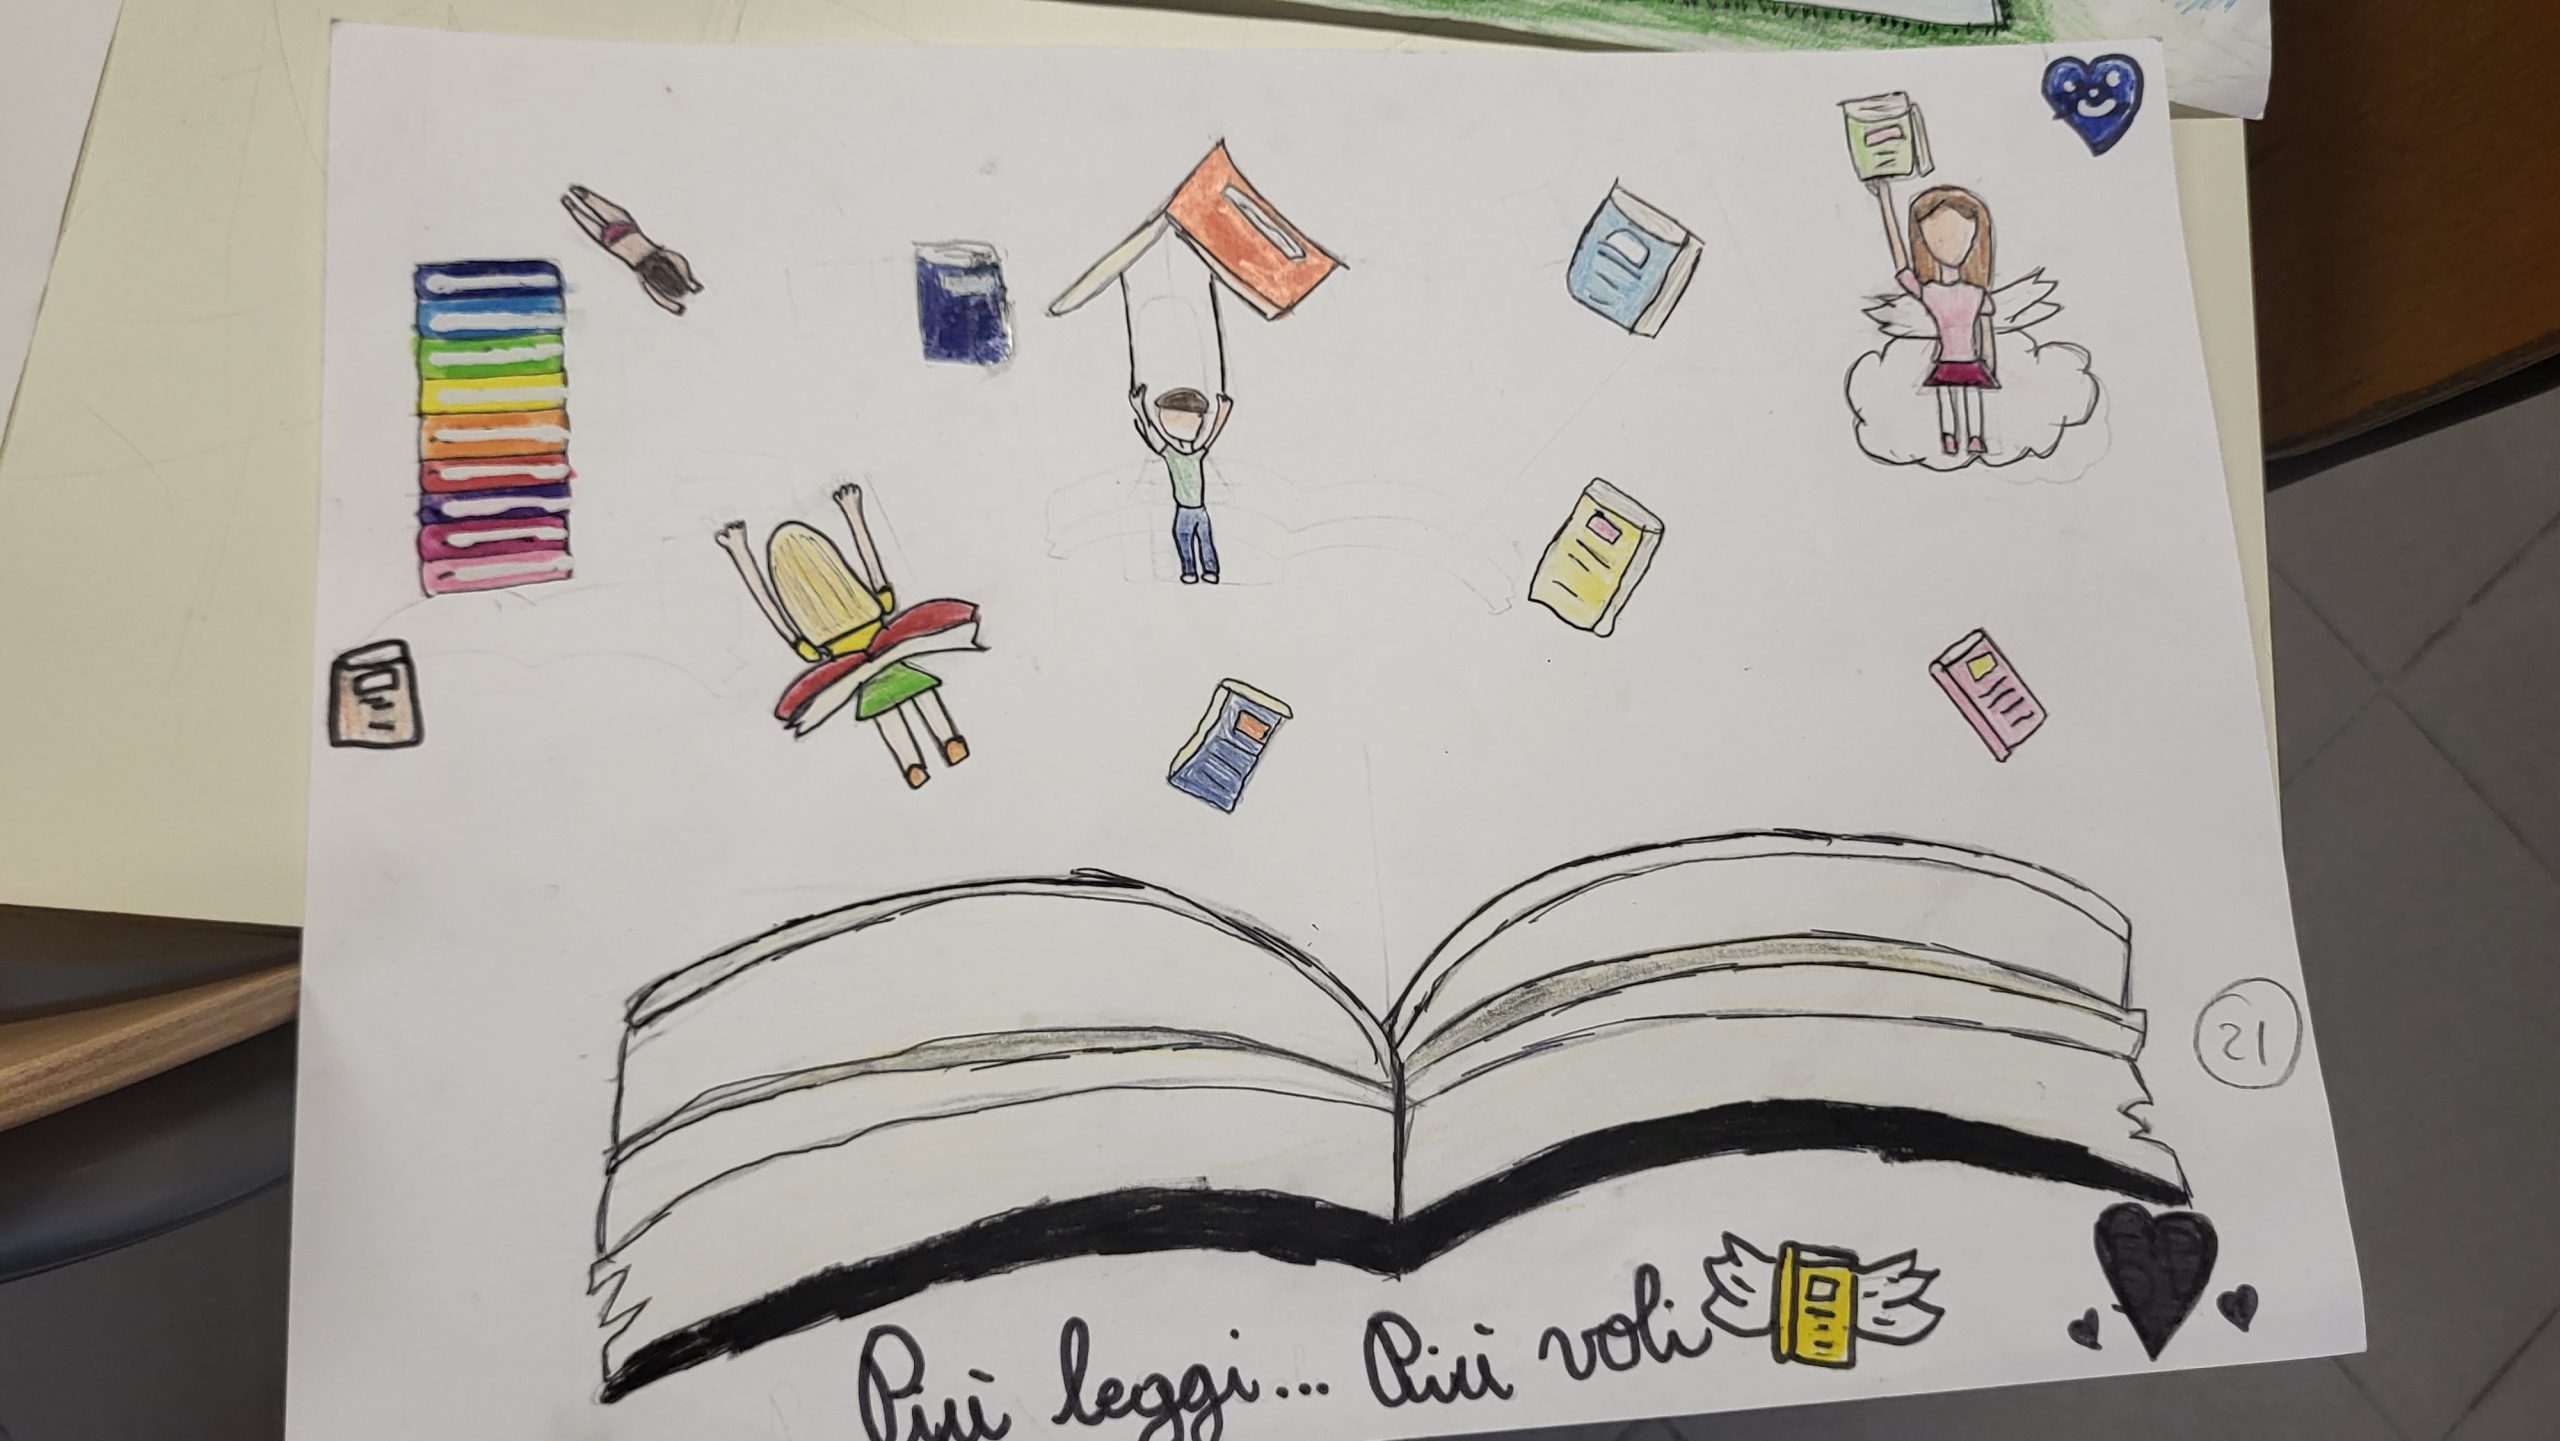 21
Più leggi... Più voli